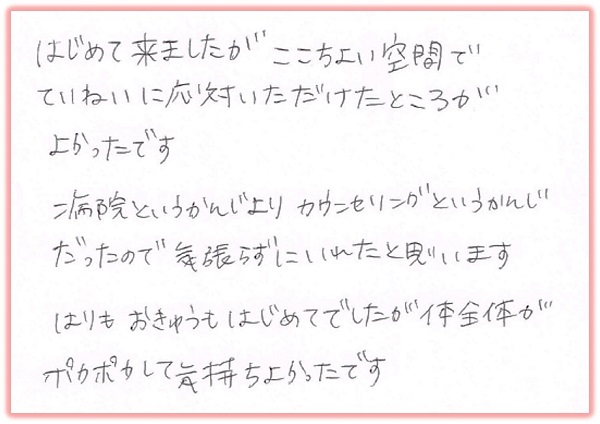 はじめて来ましたが ここちよい空間で
ていねいに応対いただけたところが
よかったです
病院というかんじより カウンセリングというかんじ
だったので 気張らずにいれたと思います
はりも おきゅうも はじめてでしたが 体全体が
ポカポカして気持ちよかったです